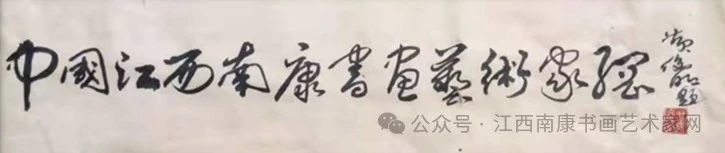 中國江西南康書画藝術家網
公众号·江西南康书画艺术家网